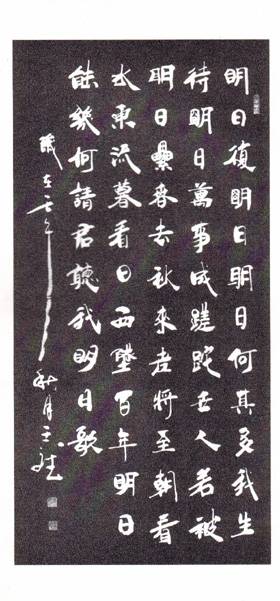 明日復明日明日何其多我生
待明日萬事成蹉跎世人若被
明日纍春去秋來老將至朝看
水東流暮看日西墜百年明日
能幾何請君聽我明日歌
歲在 秋月